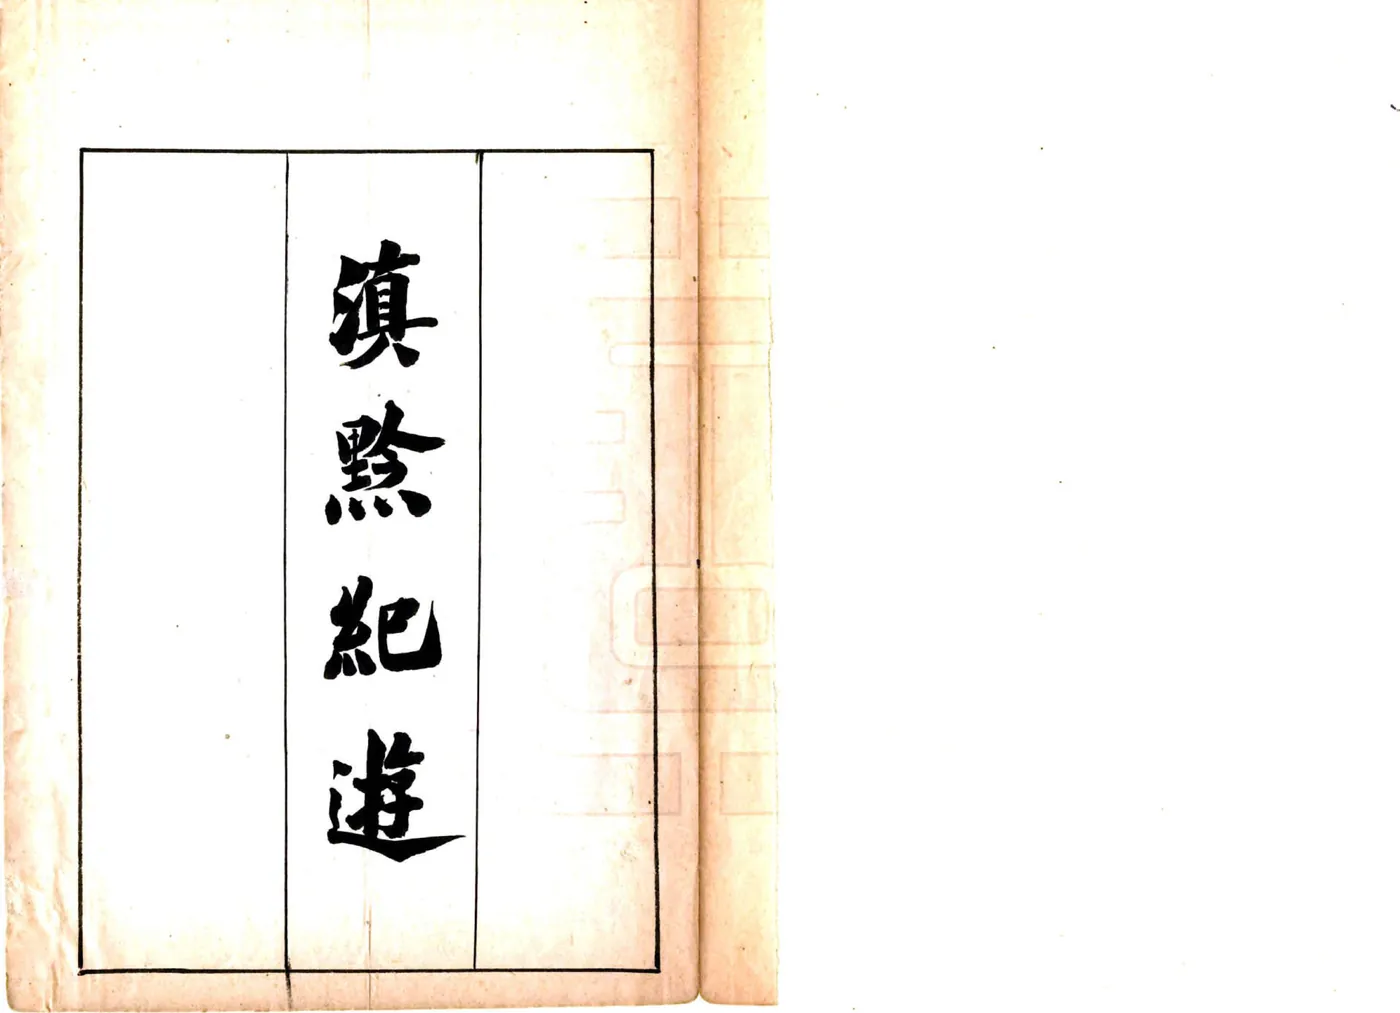 滇黔紀遊